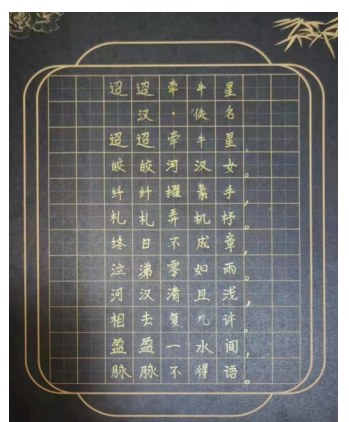 迢迢牵牛星
汉·佚名
迢迢牵牛星,
皎皎河汉女。
纤纤擢素手,
札札弄机杼。
终日不成章,
泣涕零如雨。
河汉清且浅,
相去复几许。
盈盈一水间,
脉脉不得语。